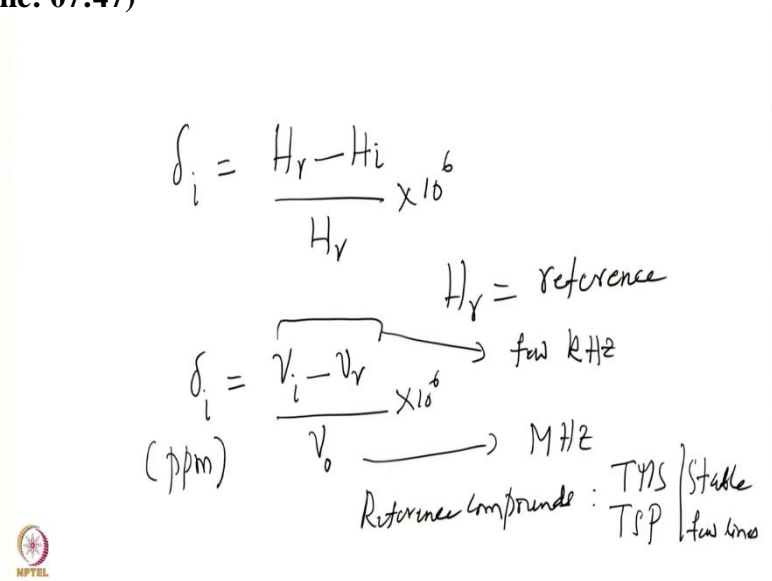 me: 07:47)
δi = Hr – Hi / Hr × 10^6
Hr = reference
δi = νi – νr / ν0 × 10^6
(ppm)
few kHz
MHz
Reference compounds : TMS | Stable
TSP | few lines
NPTEL